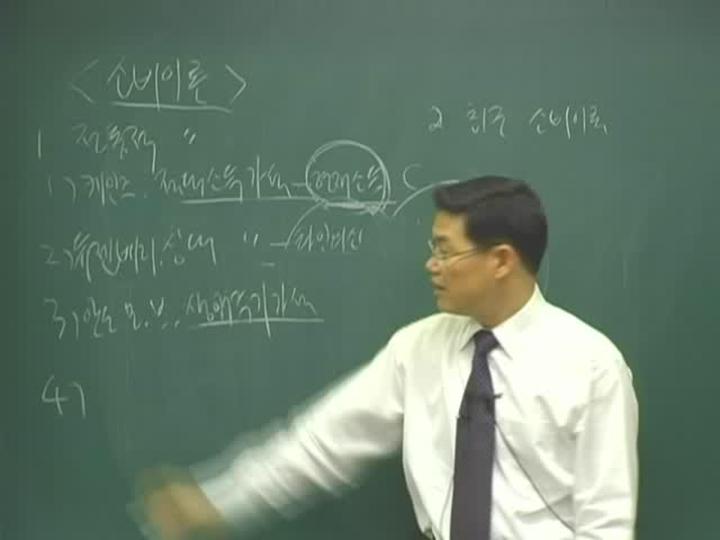 < 소비이론 >
1 전통적 〃
1) 케인즈. 절대소득가설 - 현재소득 C
2) 듀젠베리. 상대 〃 - 타인의식
3) 안도 모. 브.. 생애주기가설
4)
2 최근 소비이론